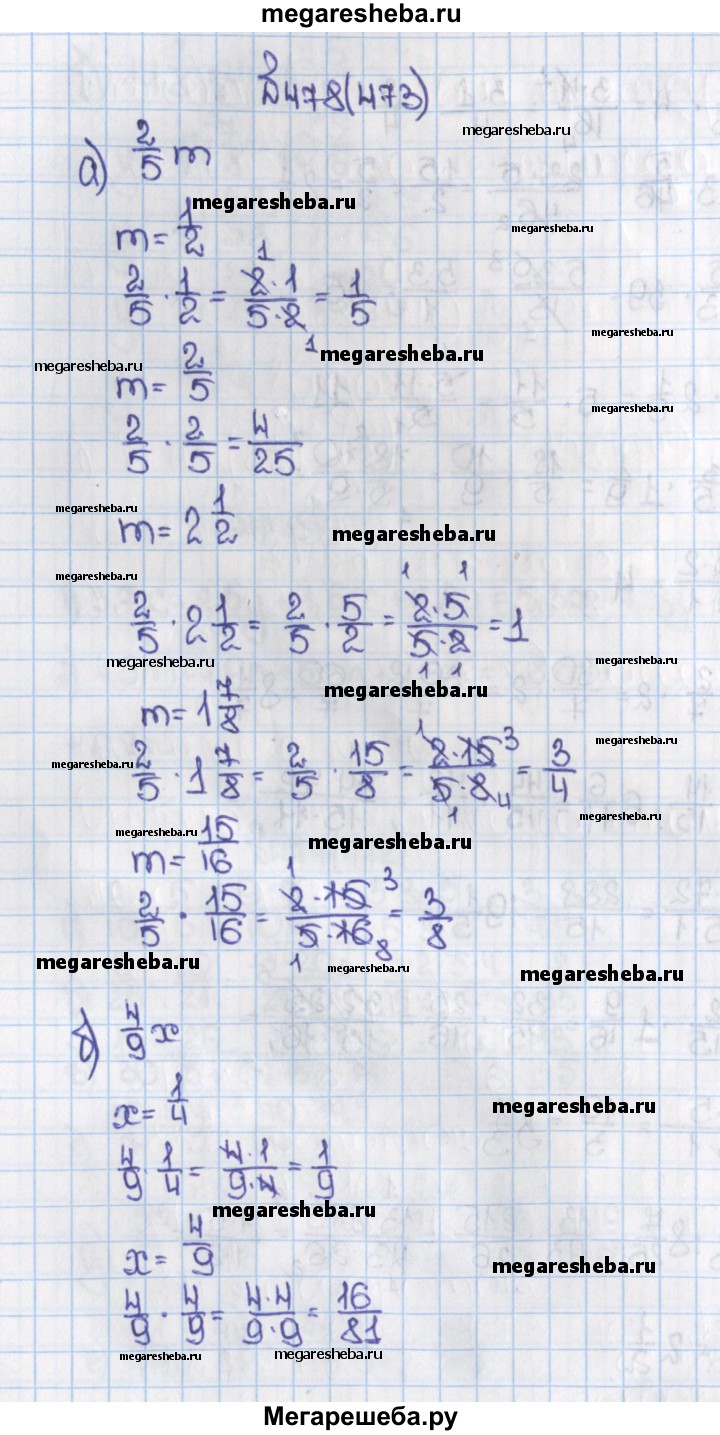 megaresheba.ru
№478(473)
megaresheba.ru
а) 2/5 m
megaresheba.ru
m = 1/2
megaresheba.ru
2/5 · 1/2 = 2·1/5·2 = 1/5
1
1
megaresheba.ru
megaresheba.ru
megaresheba.ru
m = 2/5
megaresheba.ru
2/5 · 2/5 = 4/25
megaresheba.ru
m = 2 1/2
megaresheba.ru
megaresheba.ru
1 1
2/5 · 2 1/2 = 2/5 · 5/2 = 2·5/5·2 = 1
1 1
megaresheba.ru
megaresheba.ru
megaresheba.ru
m = 1 7/8
megaresheba.ru
megaresheba.ru
1 3
2/5 · 1 7/8 = 2/5 · 15/8 = 2·15/5·8 = 3/4
1 4
megaresheba.ru
megaresheba.ru
megaresheba.ru
m = 15/16
1 3
2/5 · 15/16 = 2·15/5·16 = 3/8
1 8
megaresheba.ru
megaresheba.ru
megaresheba.ru
б) 4/9 x
x = 1/4
megaresheba.ru
4/9 · 1/4 = 4·1/9·4 = 1/9
megaresheba.ru
x = 4/9
megaresheba.ru
4/9 · 4/9 = 4·4/9·9 = 16/81
megaresheba.ru
megaresheba.ru
Мегарешеба.ру